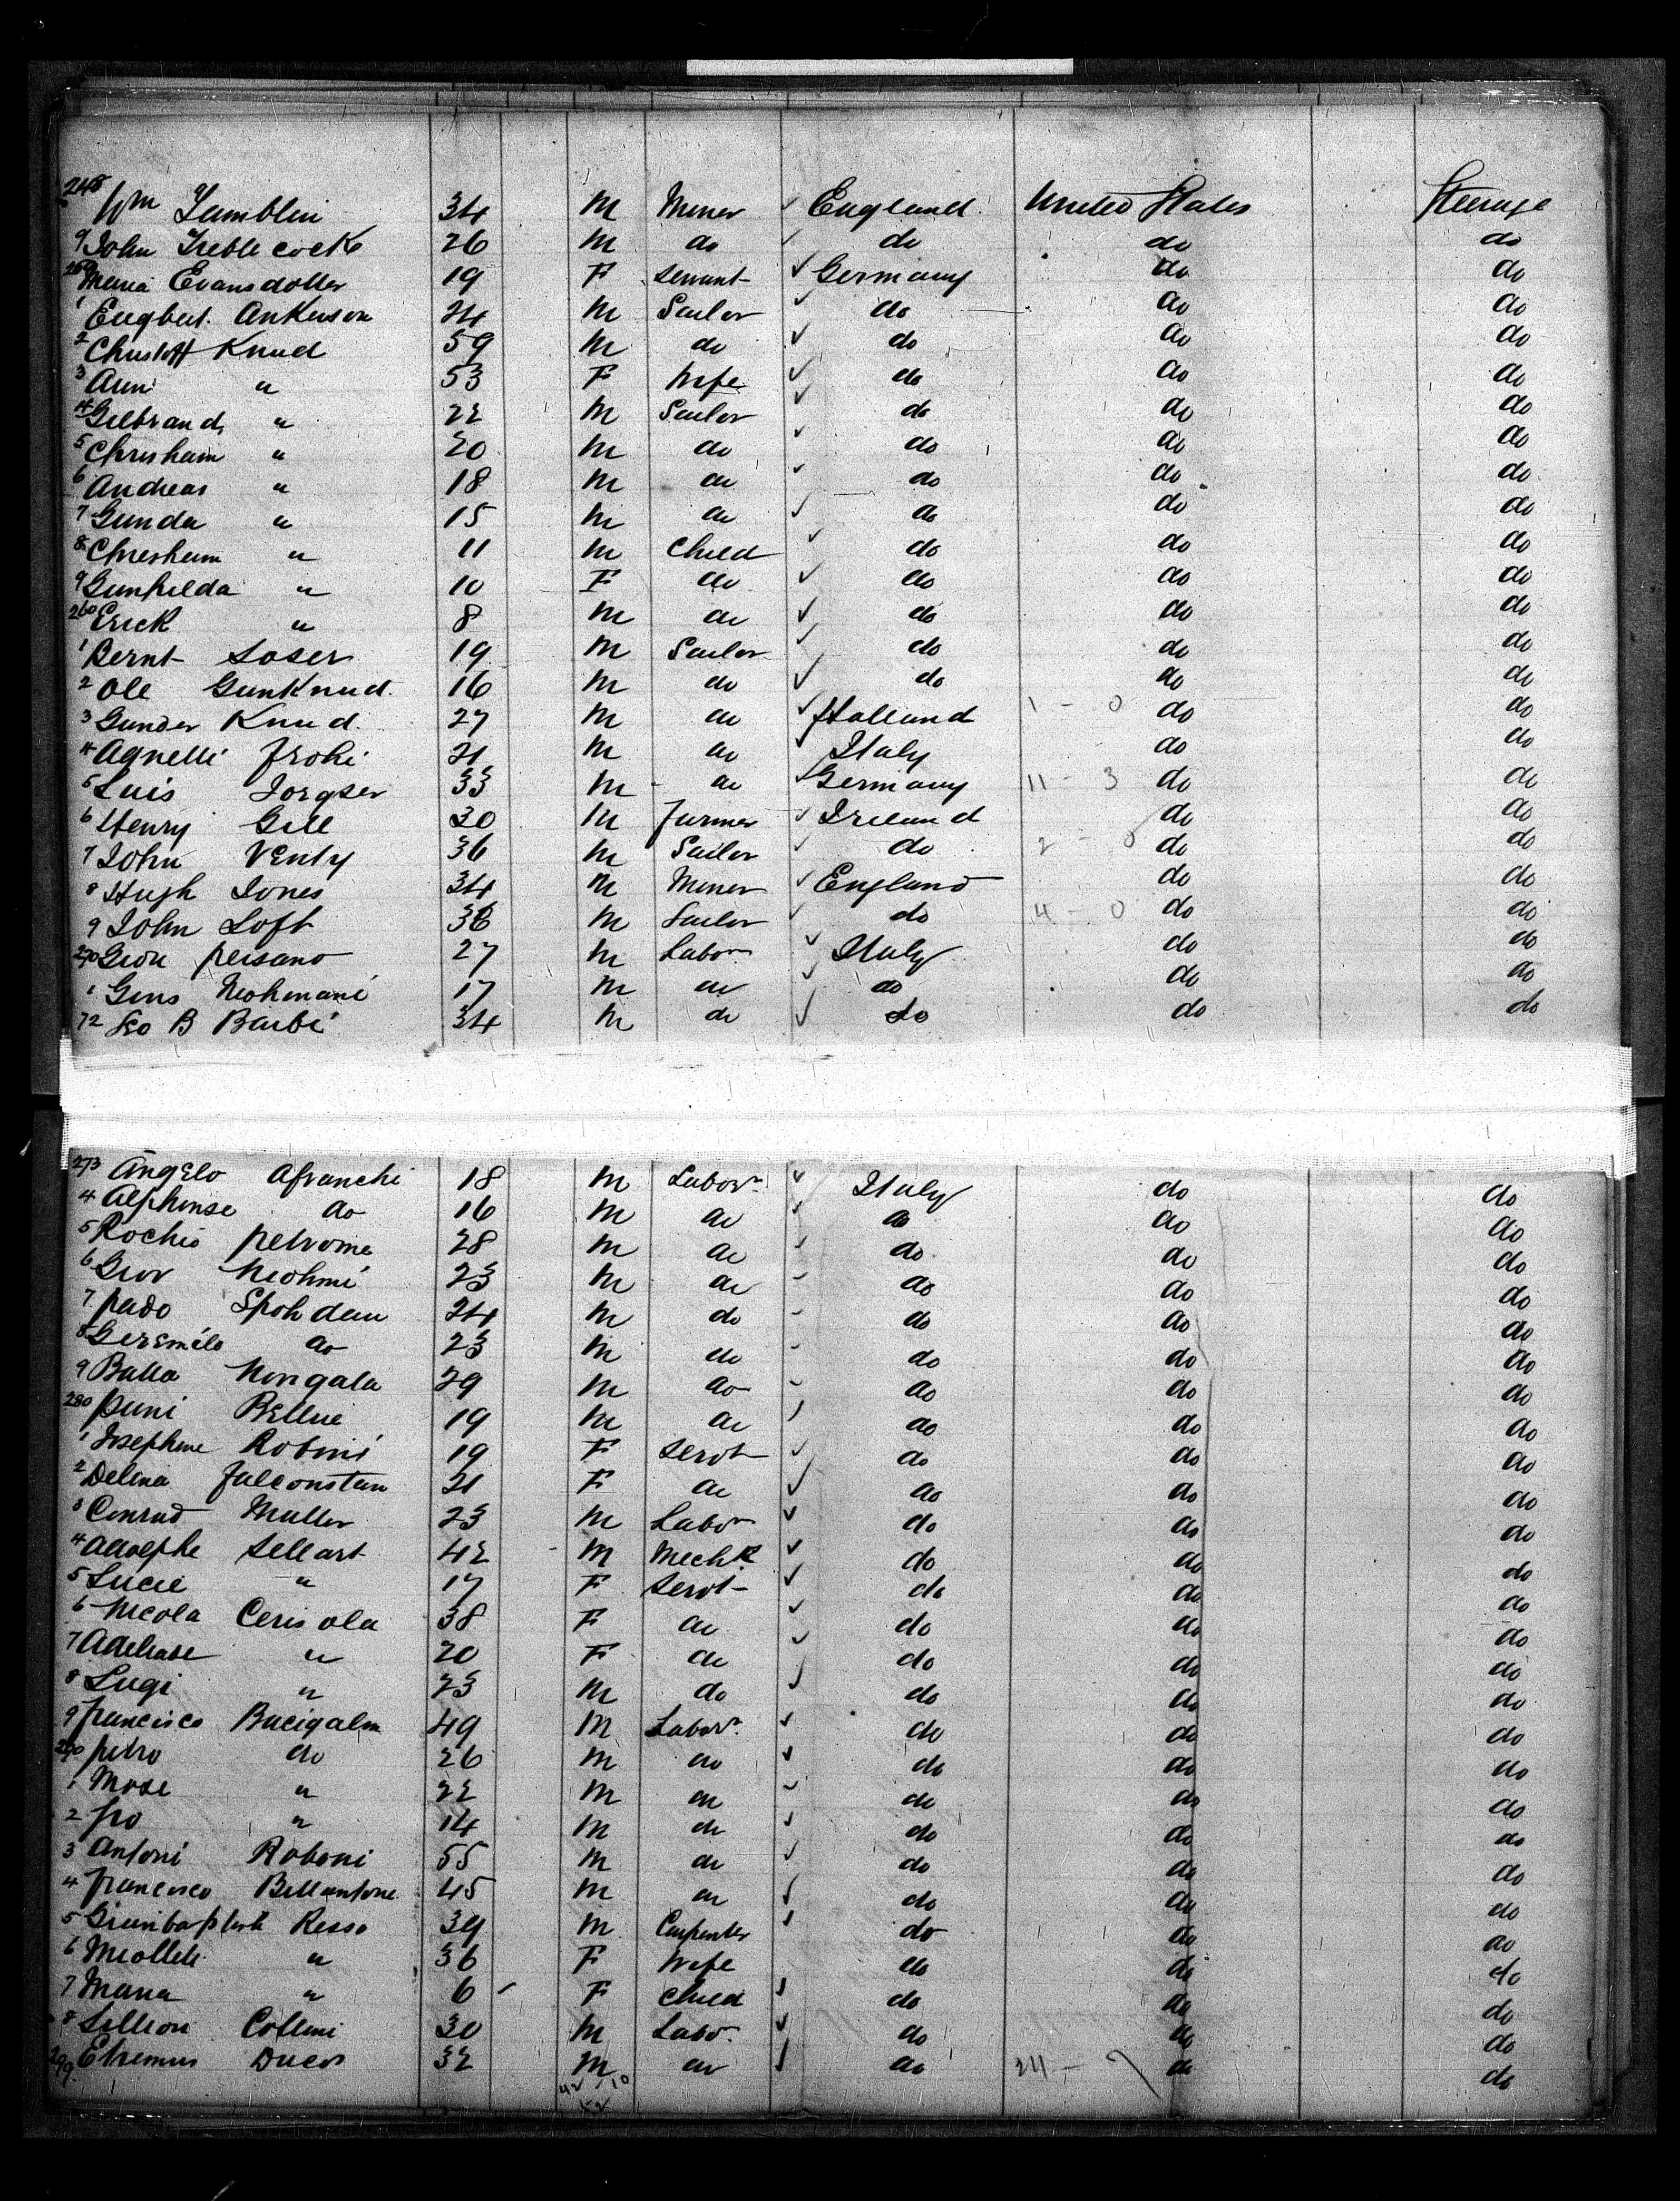 248 Wm Tamblin 34 M Miner ✓ England United States Steerage
9 John Treblecock 26 M do ✓ do do do
250 Maria Evansdotter 19 F Servant ✓ Germany do do
1 Engbert Ankerson 24 M Sailor ✓ do do do
2 Christoff Knud 59 M do ✓ do do do
3 Ann " 53 F Wife ✓ do do do
4 Gelbrand " 22 M Sailor ✓ do do do
5 Christian " 20 M do ✓ do do do
6 Andreas " 18 M do ✓ do do do
7 Gunda " 15 M do ✓ do do do
8 Christian " 11 M Child ✓ do do do
9 Gunhilda " 10 F do ✓ do do do
260 Erick " 8 M do ✓ do do do
1 Bernt Soser 19 M Sailor ✓ do do do
2 Ole GunKnud 16 M do ✓ do do do
3 Gunder Knud 27 M do ✓ Holland 1 - 0 do do
4 Agnelli Froki 21 M do ✓ Italy do do
5 Luis Jorgser 33 M do ✓ Germany 11 - 3 do do
6 Henry Gill 30 M Farmer ✓ Ireland do do
7 John Venty 36 M Sailor ✓ do 2 - 0 do do
8 Hugh Jones 34 M Miner ✓ England do do
9 John Loft 36 M Sailor ✓ do 4 - 0 do do
270 Giou persano 27 M Labor ✓ Italy do do
1 Gens 17 M do ✓ do do do
72 B Barbi 34 M do ✓ do do do
273 Angelo Afranchi 18 M Labor ✓ Italy do do
4 Alphonse do 16 M do ✓ do do do
5 Rochio petrome 28 M do do do do
6 Giov 23 M do do do do
7 pado Spohdau 24 M do do do do
8 do 23 M do do do do
9 Balla Norigala 29 M do do do do
280 puni Bellue 19 M do do do do
1 Josephine Robini 19 F Servt ✓ do do do
2 Delina Falconstan 21 F do ✓ do do do
3 Conrad Muller 23 M Labor ✓ do do do
4 Adolphe Sellart 42 M Mechk ✓ do do do
5 Lucie " 17 F Servt ✓ do do do
6 Nicola Cerisola 38 F do ✓ do do do
7 Adelaide " 20 F do ✓ do do do
8 Lugi " 23 M do ✓ do do do
9 francisco Bacigalm 49 M Labor ✓ do do do
290 petro do 26 M do ✓ do do do
1 Mose " 22 M do ✓ do do do
2 " 14 M do ✓ do do do
3 Antoni Raboni 55 M do ✓ do do do
4 francisco Bellantone 45 M do ✓ do do do
5 Resso 39 M Carpenter ✓ do do do
6 " 36 F Wife do do do
7 Maria " 6 F Child ✓ do do do
8 Collini 30 M Labr ✓ do do do
299 Etremus Ducos 32 M do ✓ do 24 - 7 do do
42 10